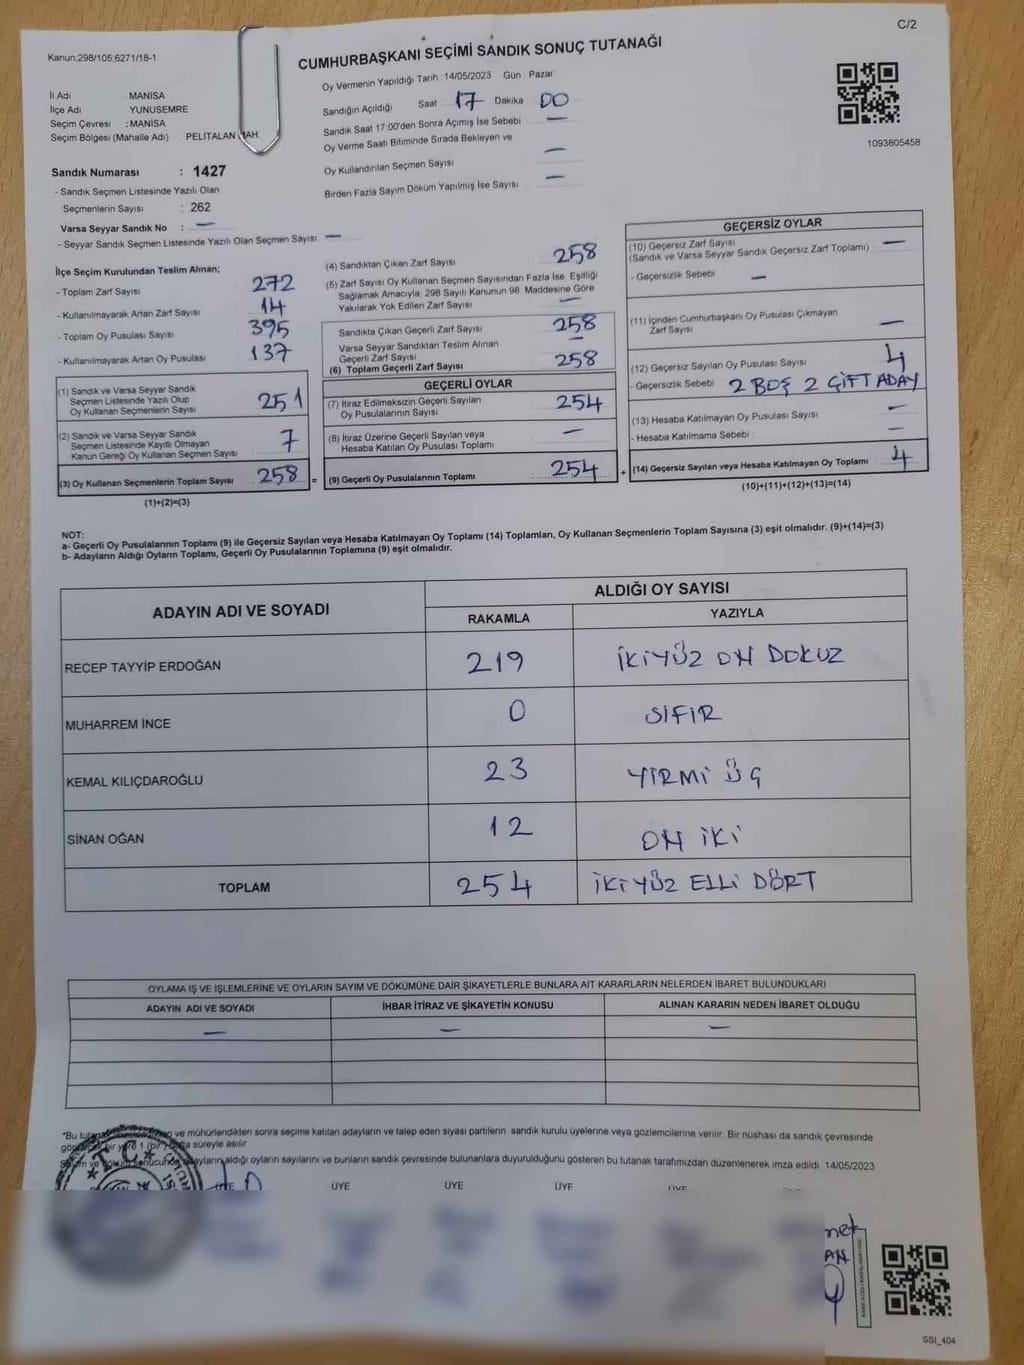 C/2
Kanun:298/105;6271/18-1
CUMHURBAŞKANI SEÇİMİ SANDIK SONUÇ TUTANAĞI
Oy Vermenin Yapıldığı Tarih :14/05/2023 Gün : Pazar
İl Adı : MANİSA
İlçe Adı : YUNUSEMRE
Seçim Çevresi : MANİSA
Seçim Bölgesi (Mahalle Adı) PELİTALAN MAH.
Sandığın Açıldığı Saat 17 Dakika 00
Sandık Saat 17:00'den Sonra Açımış İse Sebebi —
Oy Verme Saati Bitiminde Sırada Bekleyen ve
Oy Kullandırılan Seçmen Sayısı —
Birden Fazla Sayım Döküm Yapılmış İse Sayısı —
1093805458
Sandık Numarası : 1427
- Sandık Seçmen Listesinde Yazılı Olan
Seçmenlerin Sayısı : 262
Varsa Seyyar Sandık No : —
- Seyyar Sandık Seçmen Listesinde Yazılı Olan Seçmen Sayısı: —
İlçe Seçim Kurulundan Teslim Alınan;
- Toplam Zarf Sayısı 272
- Kullanılmayarak Artan Zarf Sayısı 14
- Toplam Oy Pusulası Sayısı 395
- Kullanılmayarak Artan Oy Pusulası 137
(1) Sandık ve Varsa Seyyar Sandık
Seçmen Listesinde Yazılı Olup
Oy Kullanan Seçmenlerin Sayısı 251
(2) Sandık ve Varsa Seyyar Sandık
Seçmen Listesinde Kayıtlı Olmayan
Kanun Gereği Oy Kullanan Seçmen Sayısı 7
(3) Oy Kullanan Seçmenlerin Toplam Sayısı : 258 =
(1)+(2)=(3)
(4) Sandıktan Çıkan Zarf Sayısı 258
(5) Zarf Sayısı Oy Kullanan Seçmen Sayısından Fazla İse, Eşitliği
Sağlamak Amacıyla, 298 Sayılı Kanunun 98. Maddesine Göre
Yakılarak Yok Edilen Zarf Sayısı —
Sandıkta Çıkan Geçerli Zarf Sayısı 258
Varsa Seyyar Sandıktan Teslim Alınan
Geçerli Zarf Sayısı —
(6) Toplam Geçerli Zarf Sayısı 258
GEÇERLİ OYLAR
(7) İtiraz Edilmeksizin Geçerli Sayılan
Oy Pusulalarının Sayısı 254
(8) İtiraz Üzerine Geçerli Sayılan veya
Hesaba Katılan Oy Pusulası Toplamı —
(9) Geçerli Oy Pusulalarının Toplamı : 254 +
GEÇERSİZ OYLAR
(10) Geçersiz Zarf Sayısı
(Sandık ve Varsa Seyyar Sandık Geçersiz Zarf Toplamı) : —
- Geçersizlik Sebebi : —
(11) İçinden Cumhurbaşkanı Oy Pusulası Çıkmayan
Zarf Sayısı —
(12) Geçersiz Sayılan Oy Pusulası Sayısı 4
- Geçersizlik Sebebi : 2 BOŞ 2 ÇİFT ADAY
(13) Hesaba Katılmayan Oy Pusulası Sayısı —
- Hesaba Katılmama Sebebi : —
(14) Geçersiz Sayılan veya Hesaba Katılmayan Oy Toplamı : 4
(10)+(11)+(12)+(13)=(14)
NOT:
a- Geçerli Oy Pusulalarının Toplamı (9) ile Geçersiz Sayılan veya Hesaba Katılmayan Oy Toplamı (14) Toplamları, Oy Kullanan Seçmenlerin Toplam Sayısına (3) eşit olmalıdır. (9)+(14)=(3)
b- Adayların Aldığı Oyların Toplamı, Geçerli Oy Pusulalarının Toplamına (9) eşit olmalıdır.
ADAYIN ADI VE SOYADI
ALDIĞI OY SAYISI
RAKAMLA YAZIYLA
RECEP TAYYİP ERDOĞAN 219 İKİYÜZ ON DOKUZ
MUHARREM İNCE 0 SIFIR
KEMAL KILIÇDAROĞLU 23 YİRMİ ÜÇ
SİNAN OĞAN 12 ON İKİ
TOPLAM 254 İKİ YÜZ ELLİ DÖRT
OYLAMA İŞ VE İŞLEMLERİNE VE OYLARIN SAYIM VE DÖKÜMÜNE DAİR ŞİKAYETLERLE BUNLARA AİT KARARLARIN NELERDEN İBARET BULUNDUKLARI
ADAYIN ADI VE SOYADI İHBAR İTİRAZ VE ŞİKAYETİN KONUSU ALINAN KARARIN NEDEN İBARET OLDUĞU
— — —
*Bu ve mühürlendikten sonra seçime katılan adayların ve talep eden siyasi partilerin sandık kurulu üyelerine veya gözlemcilerine verilir. Bir nüshası da sandık çevresinde
bir yere 1 (bir) hafta süreyle asılır.
adayların aldığı oyların sayılarını ve bunların sandık çevresinde bulunanlara duyurulduğunu gösteren bu tutanak tarafımızdan düzenlenerek imza edildi. 14/05/2023
T.C.
ÜYE ÜYE ÜYE ÜYE ÜYE
SSI_404